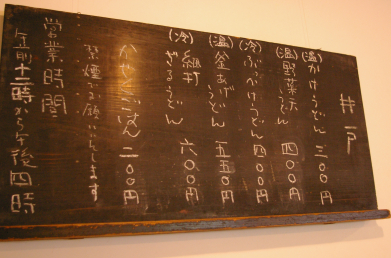 井戸
(温)かけうどん 三〇〇円
(温)野菜天うどん 四〇〇円
(冷)ぶっかけうどん 四〇〇円
(温)釜あげうどん 五五〇円
(冷)細打ざるうどん 六〇〇円
かやくごはん 二〇〇円
禁煙でお願いいたします
営業時間
午前十一時から午後四時